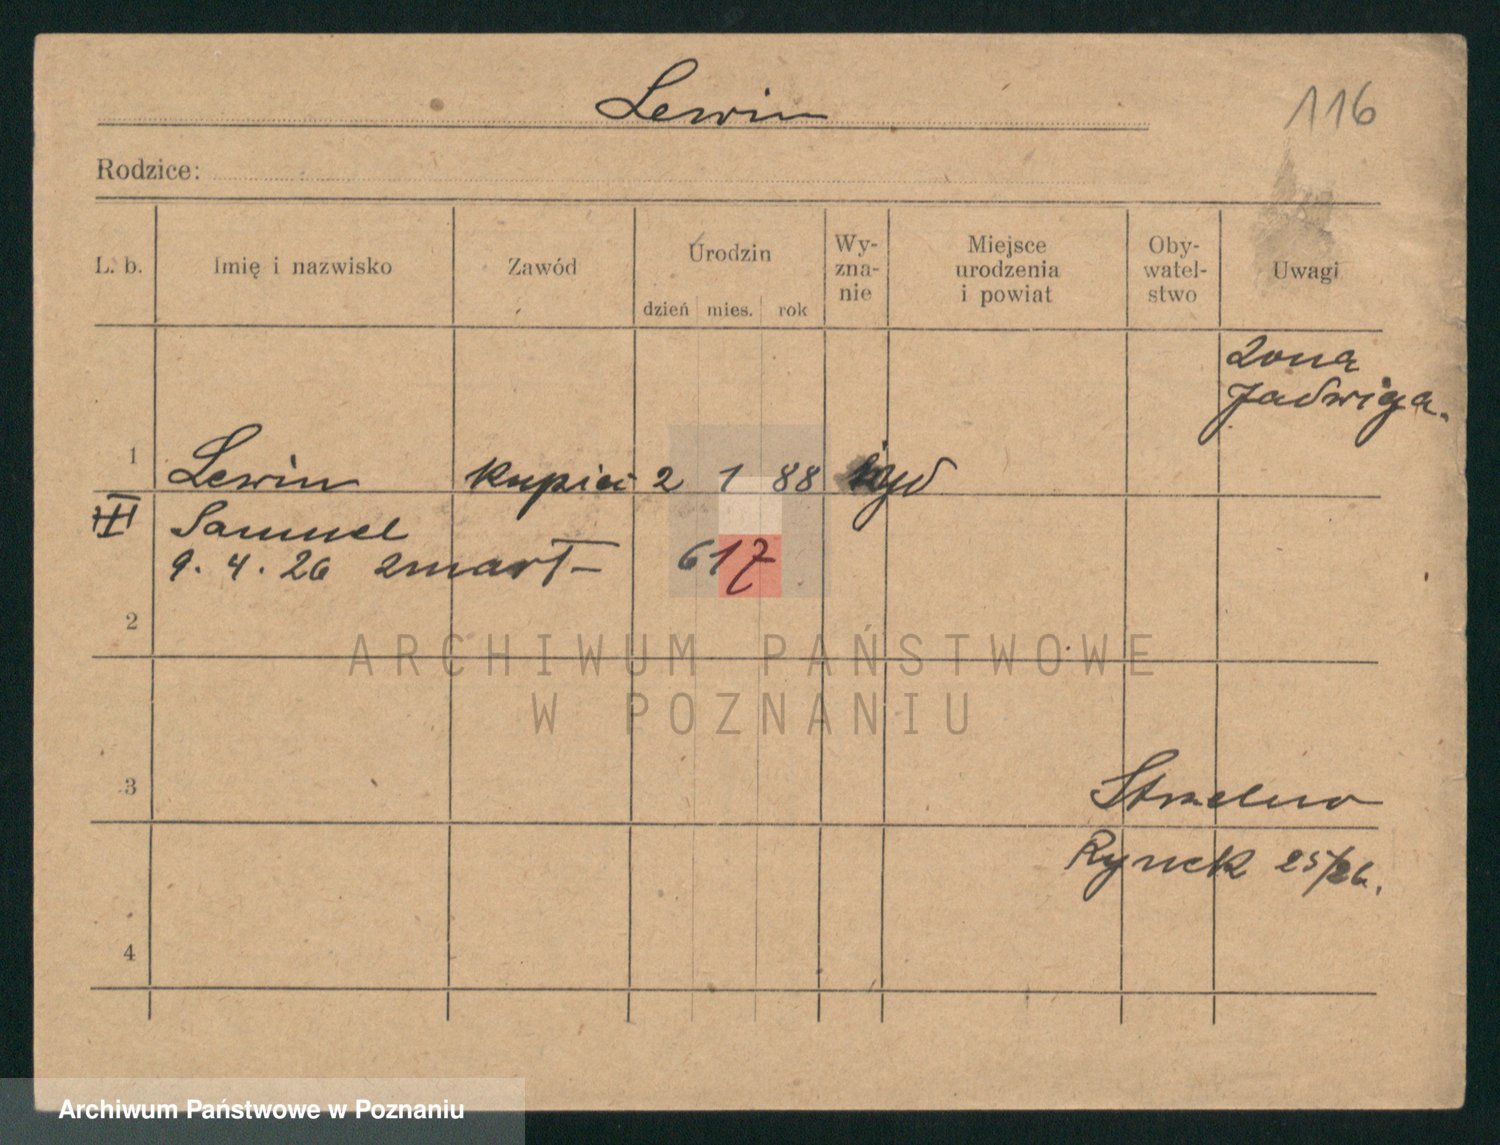 Lewin
116
Rodzice:
L. b.
Imię i nazwisko
Zawód
Urodzin
dzień mies. rok
Wy-
zna-
nie
Miejsce
urodzenia
i powiat
Oby-
watel-
stwo
Uwagi
żona
Jadwiga.
1 Lewin kupiec 2 1 88 żyd
III Samuel
9. 4. 26 zmarł – 617
2
ARCHIWUM PAŃSTWOWE
W POZNANIU
3
Strzelno
Rynek 25/26.
4
Archiwum Państwowe w Poznaniu